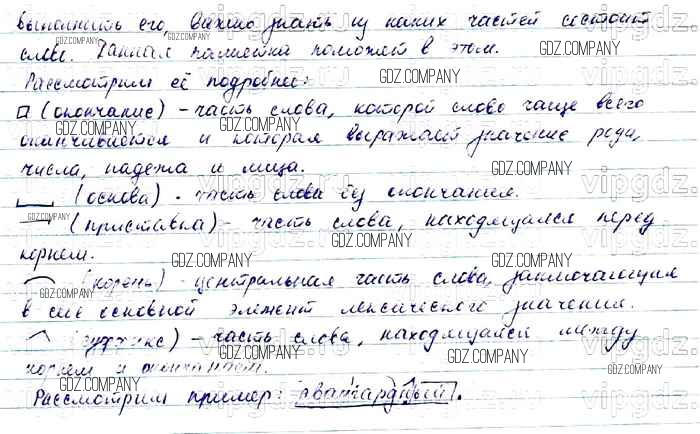 выполнить его, важно знать из каких частей состоит
слово. Данная памятка поможет в этом.
Рассмотрим её подробнее:
(окончание) - часть слова, которой слово чаще всего
оканчивается и которая выражает значение рода,
числа, падежа и лица.
(основа) - часть слова без окончания.
(приставка) - часть слова, находящаяся перед
корнем.
(корень) - центральная часть слова, заключающая
в себе основной элемент лексического значения.
(суффикс) - часть слова, находящаяся между
корнем и окончанием.
Рассмотрим пример: авангардный.
GDZ.COMPANY
vipgdz.ru